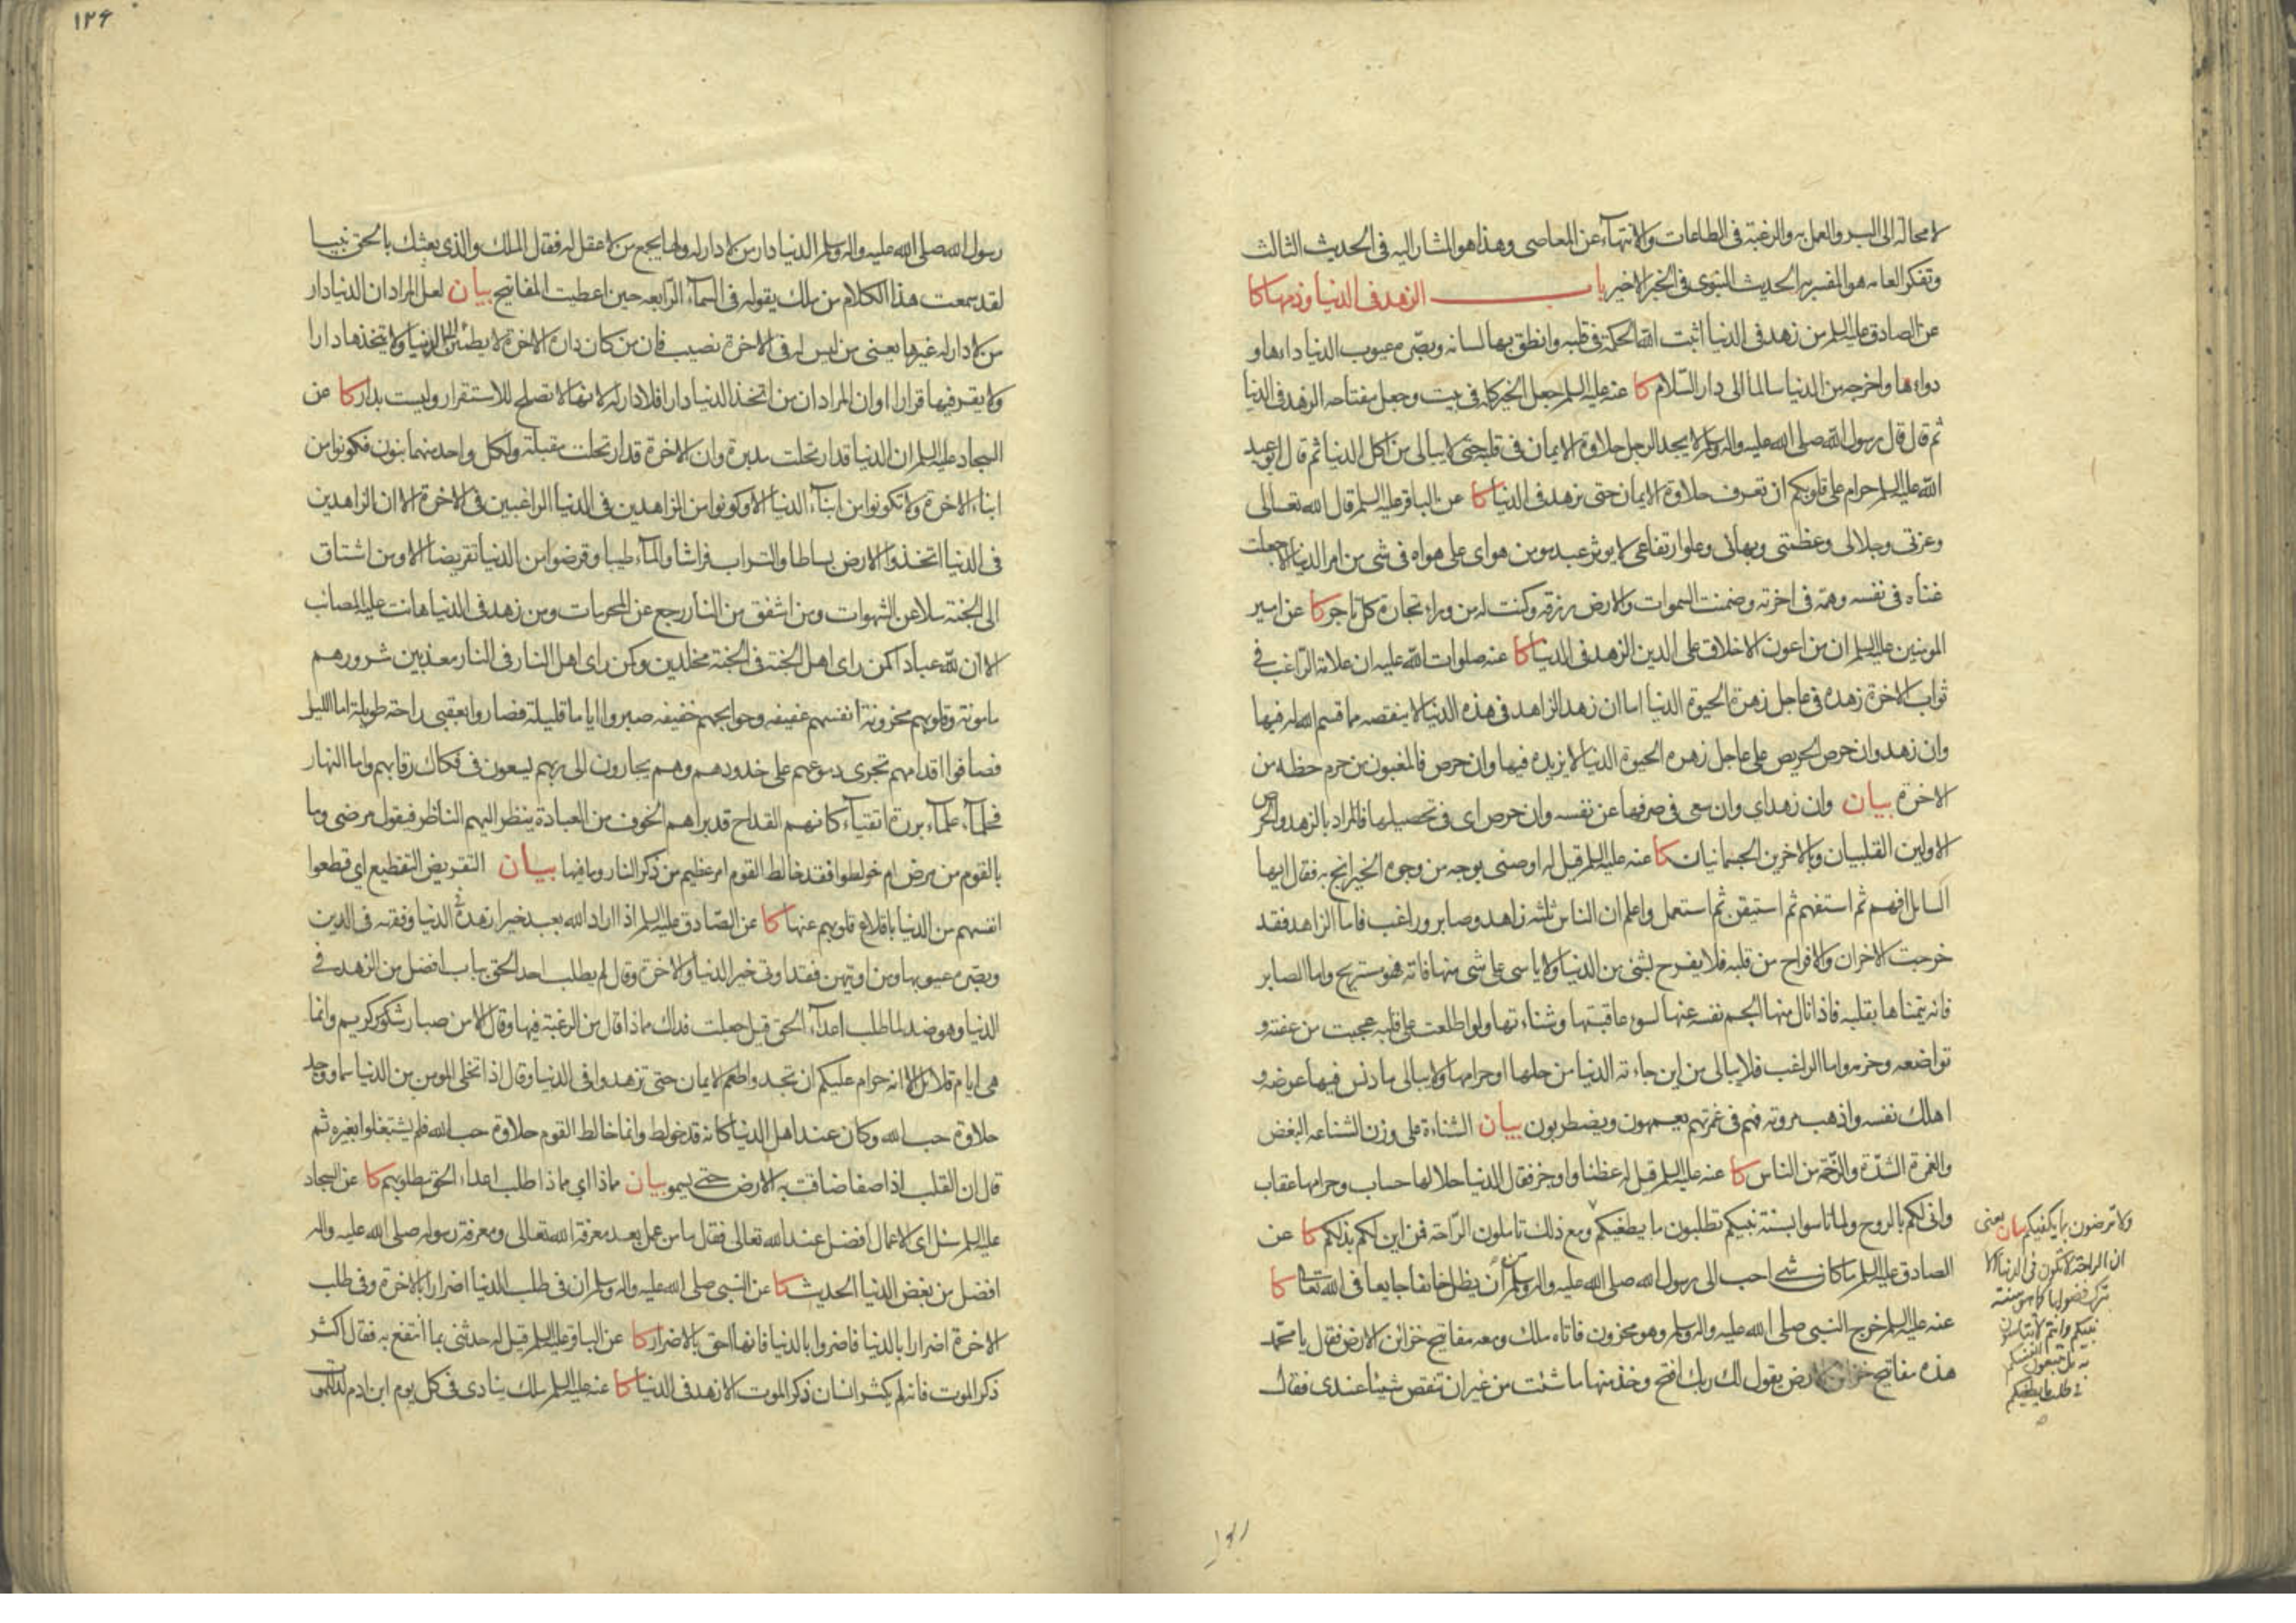 لا محالة الى البر والعمل به والرغبة فى الطاعات والانتهاء عن المعاصى وهذا هو المشار اليه فى الحديث الثالث
وتفكر العامه هو المفسر به الحديث النبوى فى الخبر الاخير باب الزهد فى الدنيا وذمها كا
عن الصادق عليه السلم من زهد فى الدنيا اثبت الله الحكمة فى قلبه وانطق بها لسانه وبصره عيوب الدنيا داءها و
دواءها واخرجه من الدنيا سالما الى دار السلام كا عنه عليه السلم جعل الخير كله فى بيت وجعل مفتاحه الزهد فى الدنيا
ثم قال قال رسول الله صلى الله عليه واله وسلم لا يجد الرجل حلاوة الايمان فى قلبه حتى لا يبالى من اكل الدنيا ثم قال ابو عبد
الله عليه السلم حرام على قلوبكم ان تعرف حلاوة الايمان حتى تزهد فى الدنيا كا عن الباقر عليه السلم قال الله تعالى
وعزتى وجلالى وعظمتى وبهائى وعلو ارتفاعى لا يوثر عبد مومن هواى على هواه فى شى من امر الدنيا الا جعلت
غناه فى نفسه وهمه فى اخرته وضمنت السموات والارض رزقه وكنت له من وراء تجارة كل تاجر كا عن امير
المومنين عليه السلم ان من اعون الاخلاق على الدين الزهد فى الدنيا كا عنه صلوات الله عليه ان علامة الراغب فى
ثواب الاخرة زهده فى عاجل زهرة الحيوة الدنيا اما ان زهد الزاهد فى هذه الدنيا لا ينقصه مما قسم الله له فيها
وان زهد وان حرص الحريص على عاجل زهرة الحيوة الدنيا لا يزيده فيها وان حرص فالمغبون من حرم حظه من
الاخرة بيان وان زهد اي وان سعى فى صرفها عن نفسه وان حرص اى فى تحصيلها فالمراد بالزهد والحرص
الاولين القلبيان وبالاخرين الجسمانيان كا عنه عليه السلم قيل له اوصنى بوجه من وجوه الخير انج به فقال ايها
السايل افهم ثم استفهم ثم استيقن ثم استعمل واعلم ان الناس ثلثه زاهد وصابر وراغب فاما الزاهد فقد
خرجت الاحزان والافراح من قلبه فلا يفرح بشئ من الدنيا ولا ياسى على شى منها فاته فهو مستريح واما الصابر
فانه يتمناها بقلبه فاذا نال منها الجم نفسه عنها لسوء عاقبتها وشناءتها ولو اطلعت على قلبه عجبت من عفته و
تواضعه وحزمه واما الراغب فلا يبالى من اين جاءته الدنيا من حلها او حرامها ولا يبالى ما دنس فيها عرضه و
اهلك نفسه واذهب مروته فهم فى غمرتهم يعمهون ويضطربون بيان الشناءة على وزن الشناعه البغض
والغمرة الشدة والزحمة من الناس كا عنه عليه السلم قيل له عظنا واوجز فقال الدنيا حلالها حساب وحرامها عقاب
وانى لكم بالروح ولما تاسوا بسنة نبيكم تطلبون ما يطغيكم ومع ذلك تاملون الراحة فمن اين لكم بذلكم كا عن
الصادق عليه السلم ما كان شى احب الى رسول الله صلى الله عليه واله وسلم من ان يظل خائفا جايعا فى الله تعالى كا
عنه عليه السلم خرج النبى صلى الله عليه واله وسلم وهو محزون فاتاه ملك ومعه مفاتيح خزائن الارض فقال يا محمد
هذه مفاتيح خزائن الارض يقول لك ربك افتح وخذ منها ما شئت من غير ان تنقص شيئا عندى فقال
ولا ترضون بما يكفيكم بيان يعنى
ان الراحة لا تكون فى الدنيا الا
بترك فضولها كما هو سنة
نبيكم وانتم لا تتاسون
به بل تتبعون انفسكم
فى طلب ما يطغيكم
١٢۶
رسول الله صلى الله عليه واله وسلم الدنيا دار من لا دار له ولها يجمع من لا عقل له فقال الملك والذى بعثك بالحق نبيا
لقد سمعت هذا الكلام من ملك يقوله فى السماء الرابعه حين اعطيت المفاتيح بيان لعل المراد ان الدنيا دار
من لا دار له غيرها يعنى من ليس له فى الاخرة نصيب فان من كان داره الاخرة لا يطمئن الى الدنيا ولا يتخذها دارا
ولا يقر فيها قرارا او ان المراد ان من اتخذ الدنيا دارا فلا دار له لانها لا تصلح للاستقرار وليست بدار كا عن
السجاد عليه السلم ان الدنيا قد ارتحلت مدبرة وان الاخرة قد ارتحلت مقبلة ولكل واحد منهما بنون فكونوا من
ابناء الاخرة ولا تكونوا من ابناء الدنيا الا وكونوا من الزاهدين فى الدنيا الراغبين فى الاخرة الا ان الزاهدين
فى الدنيا اتخذوا الارض بساطا والتراب فراشا والماء طيبا وقرضوا من الدنيا تقريضا الا ومن اشتاق
الى الجنة سلا عن الشهوات ومن اشفق من النار رجع عن المحرمات ومن زهد فى الدنيا هانت عليه المصائب
الا ان لله عبادا كمن راى اهل الجنة فى الجنة مخلدين وكمن راى اهل النار فى النار معذبين شرورهم
مامونة وقلوبهم محزونة انفسهم عفيفه وحوائجهم خفيفه صبروا اياما قليلة فصاروا بعقبى راحة طويلة اما الليل
فصافوا اقدامهم تجرى دموعهم على خدودهم وهم يجارون الى ربهم يسعون فى فكاك رقابهم واما النهار
فحلماء علماء بررة اتقياء كانهم القداح قد براهم الخوف من العبادة ينظر اليهم الناظر فيقول مرضى وما
بالقوم من مرض ام خولطوا فقد خالط القوم امر عظيم من ذكر النار وما فيها بيان التقريض التقطيع اى قطعوا
انفسهم من الدنيا باقلاع قلوبهم عنها كا عن الصادق عليه السلم اذا اراد الله بعبد خيرا زهده فى الدنيا وفقهه فى الدين
وبصره عيوبها ومن اوتيهن فقد اوتى خير الدنيا والاخرة وقال لم يطلب احد الحق بباب افضل من الزهد فى
الدنيا وهو ضد لما طلب اعداء الحق قيل جعلت فداك مماذا قال من الرغبة فيها وقال الا من صبار شكور كريم وانما
هى ايام قلائل الا انه حرام عليكم ان تجدوا طعم الايمان حتى تزهدوا فى الدنيا وقال اذا تخلى المومن من الدنيا سما ووجد
حلاوة حب الله وكان عند اهل الدنيا كانه قد خولط وانما خالط القوم حلاوة حب الله فلم يشتغلوا بغيره ثم
قال ان القلب اذا صفا ضاقت به الارض حتى يسمو بيان مماذا اي مماذا طلب اعداء الحق مطلوبهم كا عن السجاد
عليه السلم سئل اى الاعمال افضل عند الله تعالى فقال ما من عمل بعد معرفة الله تعالى ومعرفة رسوله صلى الله عليه واله
افضل من بغض الدنيا الحديث كا عن النبى صلى الله عليه واله وسلم ان فى طلب الدنيا اضرارا بالاخرة وفى طلب
الاخرة اضرارا بالدنيا فاضروا بالدنيا فانها احق بالاضرار كا عن الباقر عليه السلم قيل له حدثنى بما انتفع به فقال اكثر
ذكر الموت فانه لم يكثر انسان ذكر الموت الا زهد فى الدنيا كا عنه عليه السلم ملك ينادى فى كل يوم ابن ادم لد للموت